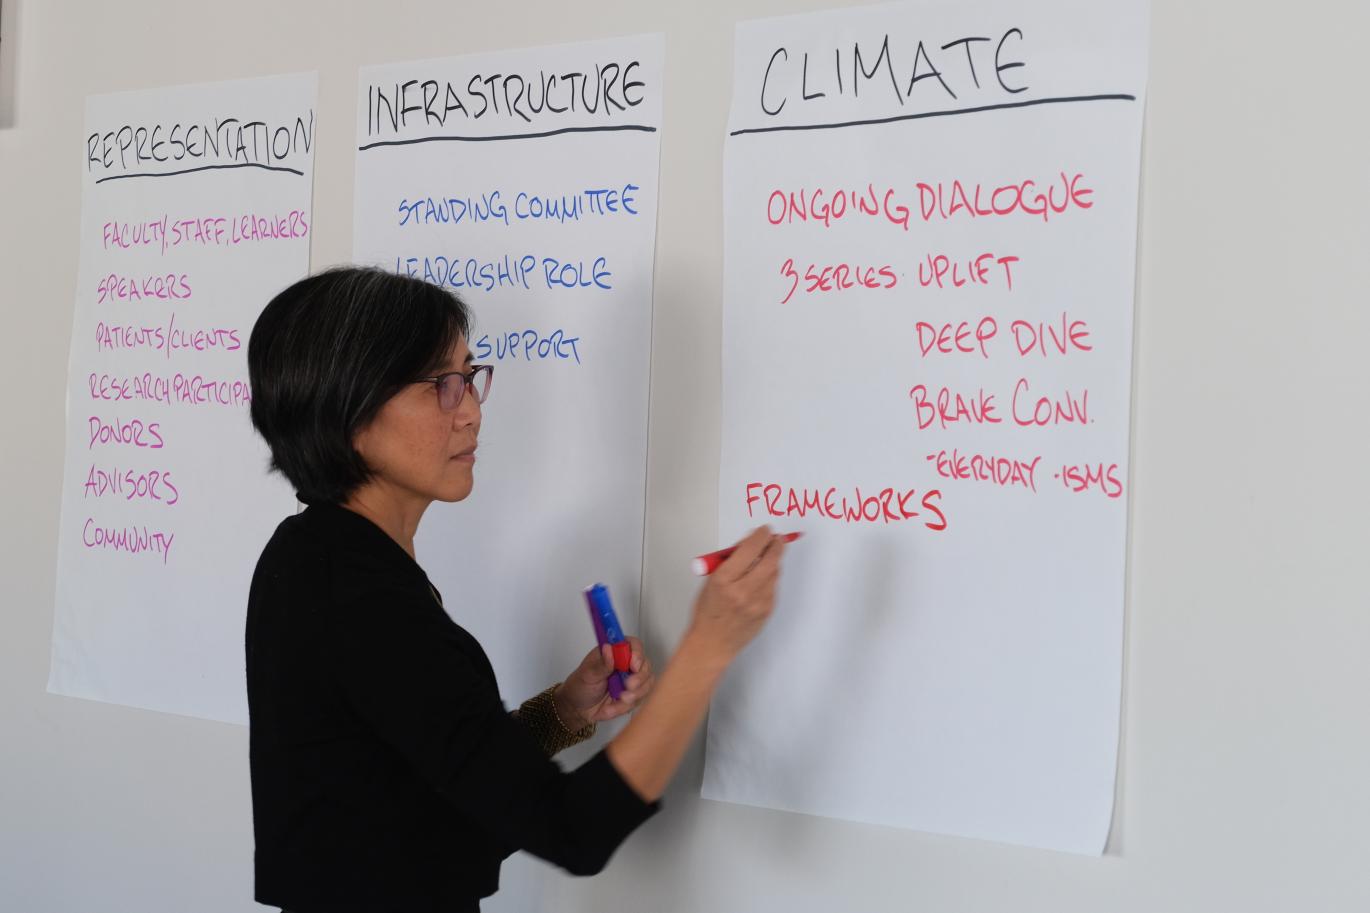 REPRESENTATION
FACULTY, STAFF, LEARNERS
SPEAKERS
PATIENTS/CLIENTS
RESEARCH PARTICIPA
DONORS
ADVISORS
COMMUNITY
INFRASTRUCTURE
STANDING COMMITTEE
LEADERSHIP ROLE
SUPPORT
CLIMATE
ONGOING DIALOGUE
3 SERIES UPLIFT
DEEP DIVE
BRAVE CONV.
-EVERYDAY -ISMS
FRAMEWORKS